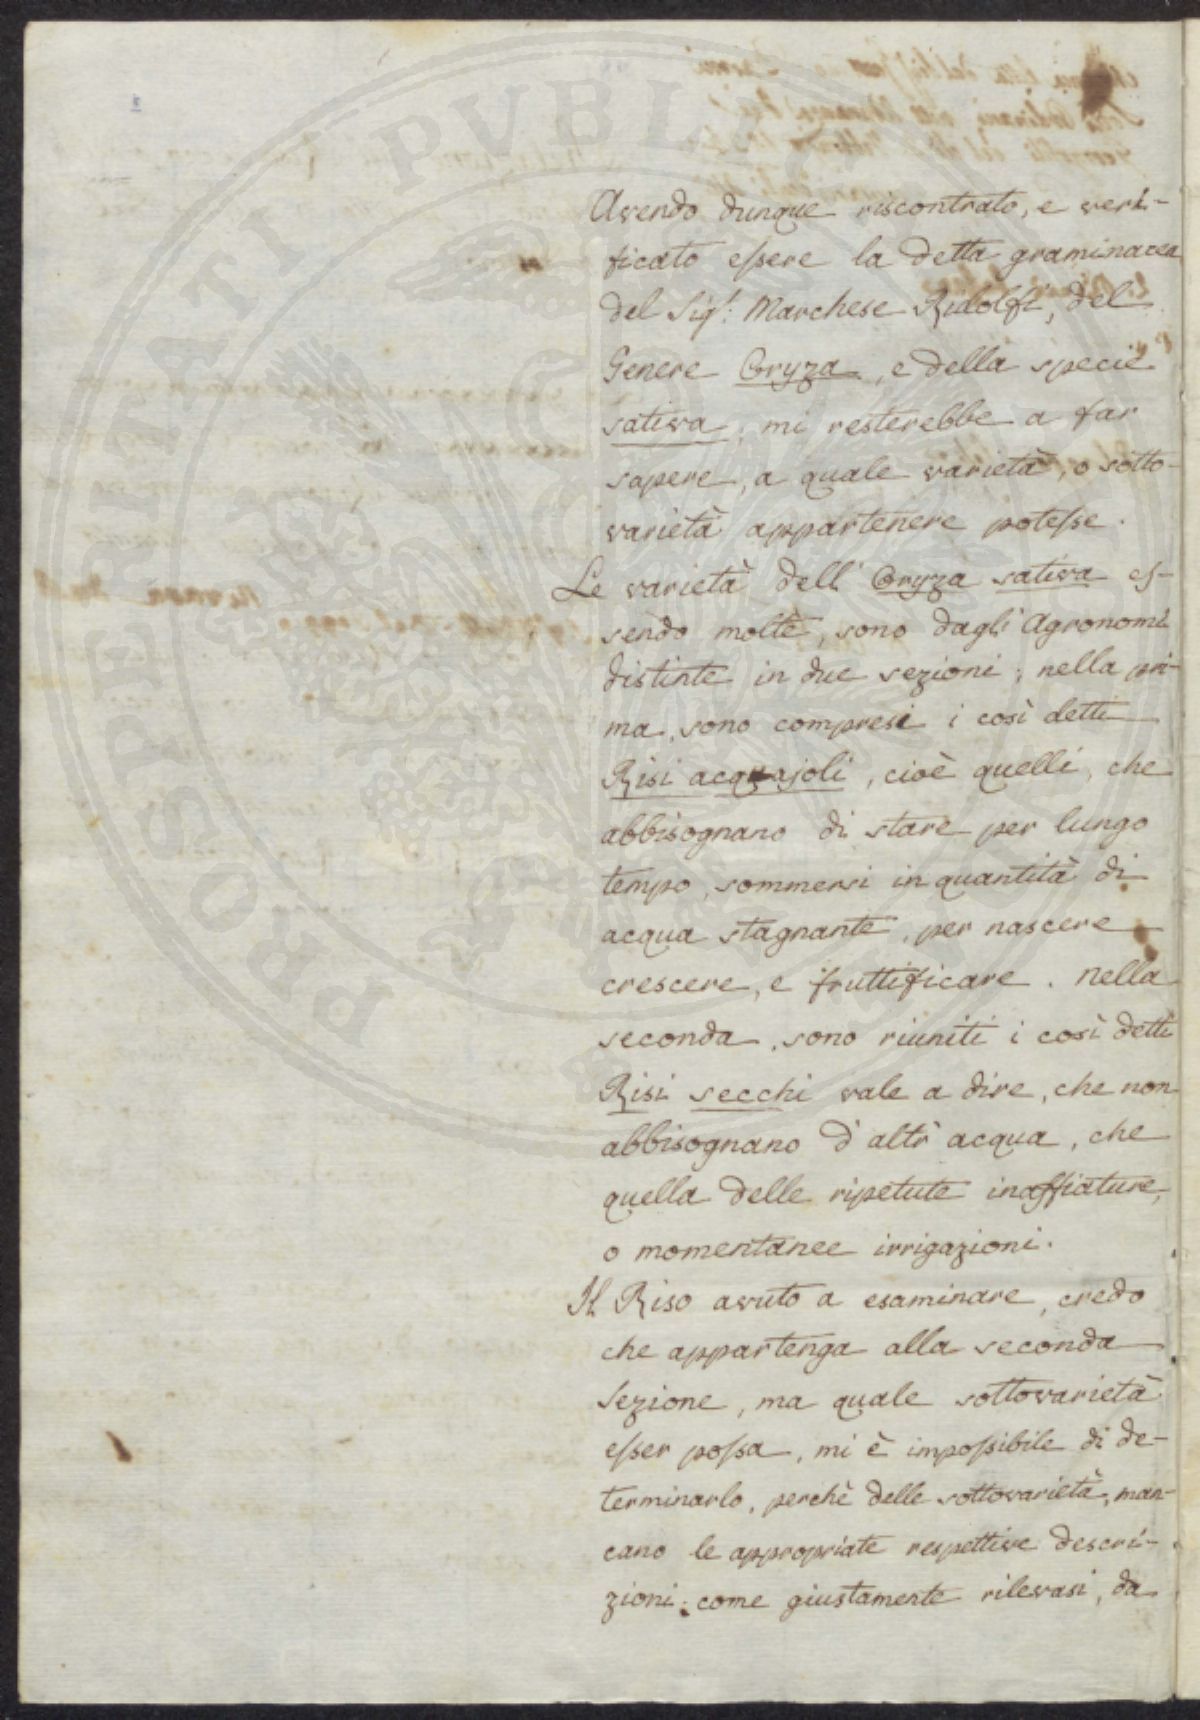 Avendo dunque riscontrato, e veri-
ficato eſsere la detta graminacea
del Sig.r Marchese Ridolfi, del
Genere Oryza, e della specie
sativa, mi resterebbe a far
sapere, a quale varietà, o sotto-
varietà appartenere poteſse.
Le varietà dell' Oryza sativa eſ-
sendo molte, sono dagli Agronomi
distinte in due sezioni; nella pri-
ma, sono compresi i così detti
Risi acquajoli, cioè quelli, che
abbisognano di stare per lungo
tempo, sommersi in quantità di
acqua stagnante, per nascere
crescere, e fruttificare. Nella
seconda, sono riuniti i così detti
Risi secchi vale a dire, che non
abbisognano d'altr' acqua, che
quella delle ripetute inaffiature,
o momentanee irrigazioni.
Il Riso avuto a esaminare, credo
che appartenga alla seconda
Sezione, ma quale sottovarietà
eſser poſsa, mi è impoſsibile di de-
terminarlo, perchè delle sottovarietà, man-
cano le appropriate respettive descri-
zioni; come giustamente rilevasi, da
PROSPERITATI PVBLICAE